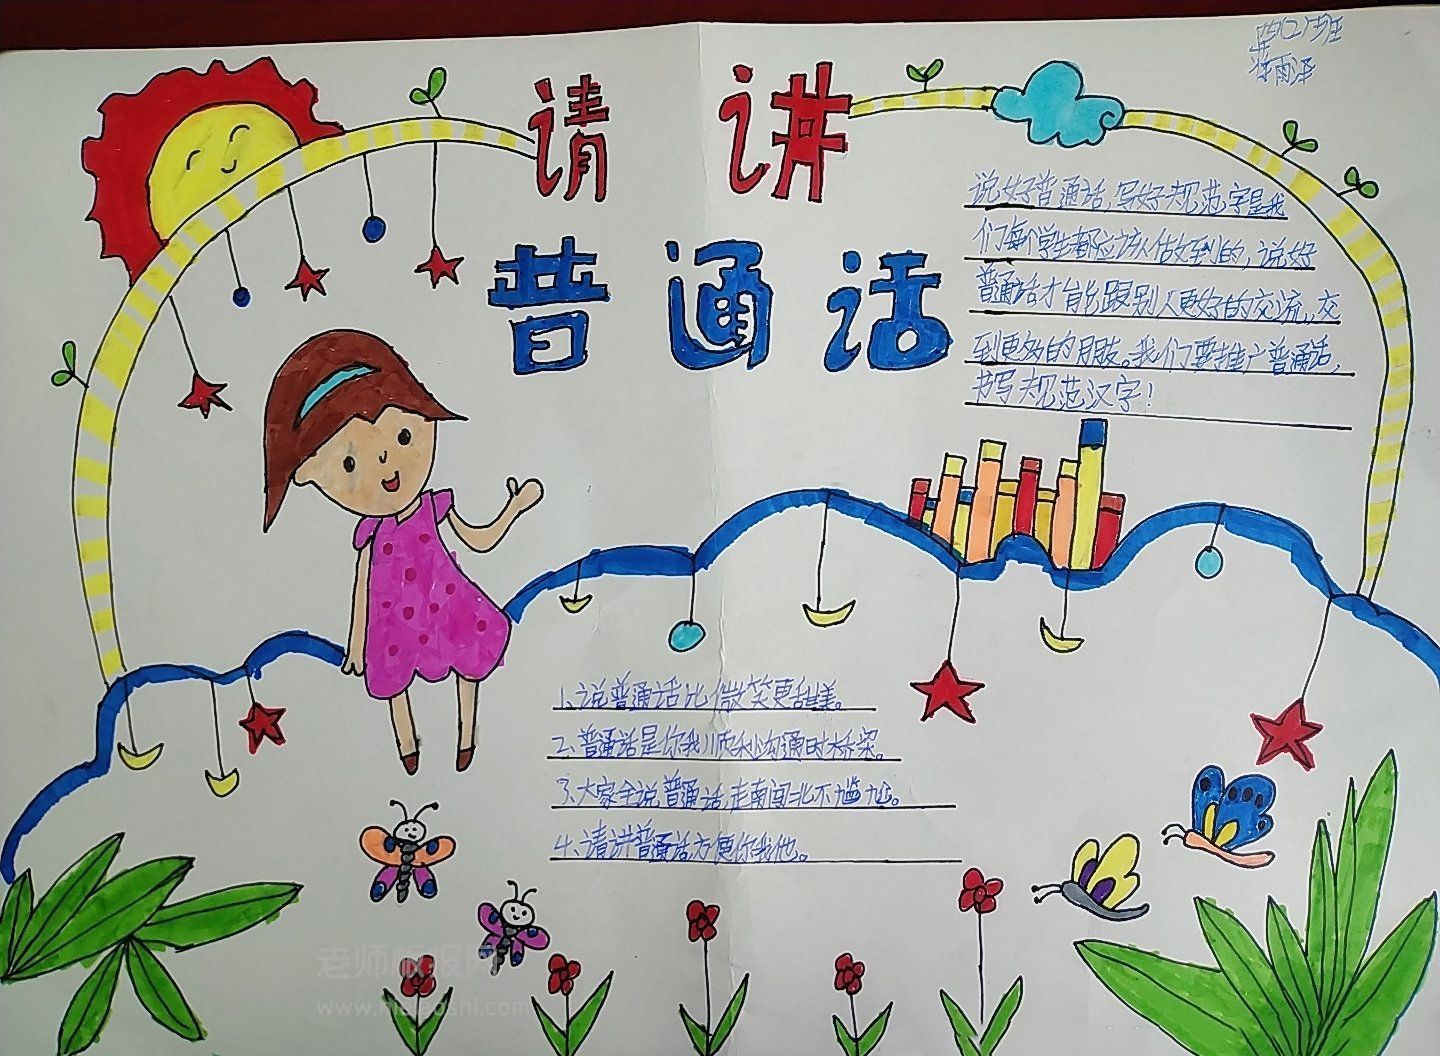 请讲
普通话
说好普通话,写好规范字是我
们每个学生都应该做到的,说好
普通话才能跟别人更好的交流,交
到更多的朋友。我们要推广普通话,
书写规范汉字!
1、说普通话比微笑更甜美。
2、普通话是你我顺利沟通时桥梁。
3、大家全说普通话,走南闯北不尴尬。
4、请讲普通话方便你我他。
老师板报网